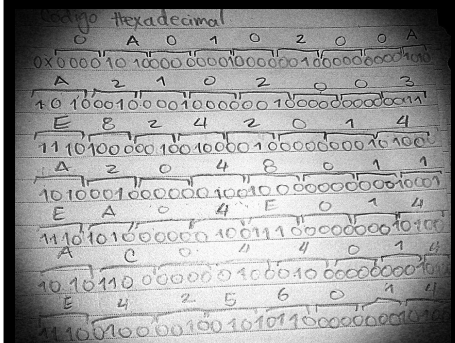 Código Hexadecimal
0 A 0 1 0 2 0 0 A
0x000010100000000100000010000000001010
A 2 1 0 2 0 0 3
10100010000100000010000000000011
E 8 2 4 2 0 1 4
11101000001001000010000000010100
A 2 0 4 8 0 1 1
10100010000001001000000000010001
E A 0 4 E 0 1 4
11101010000001001110000000010100
A C 0 4 4 0 1 4
1010110000000100010000000001010
E 4 2 5 6 0 1 4
11100100001001010110000000010100